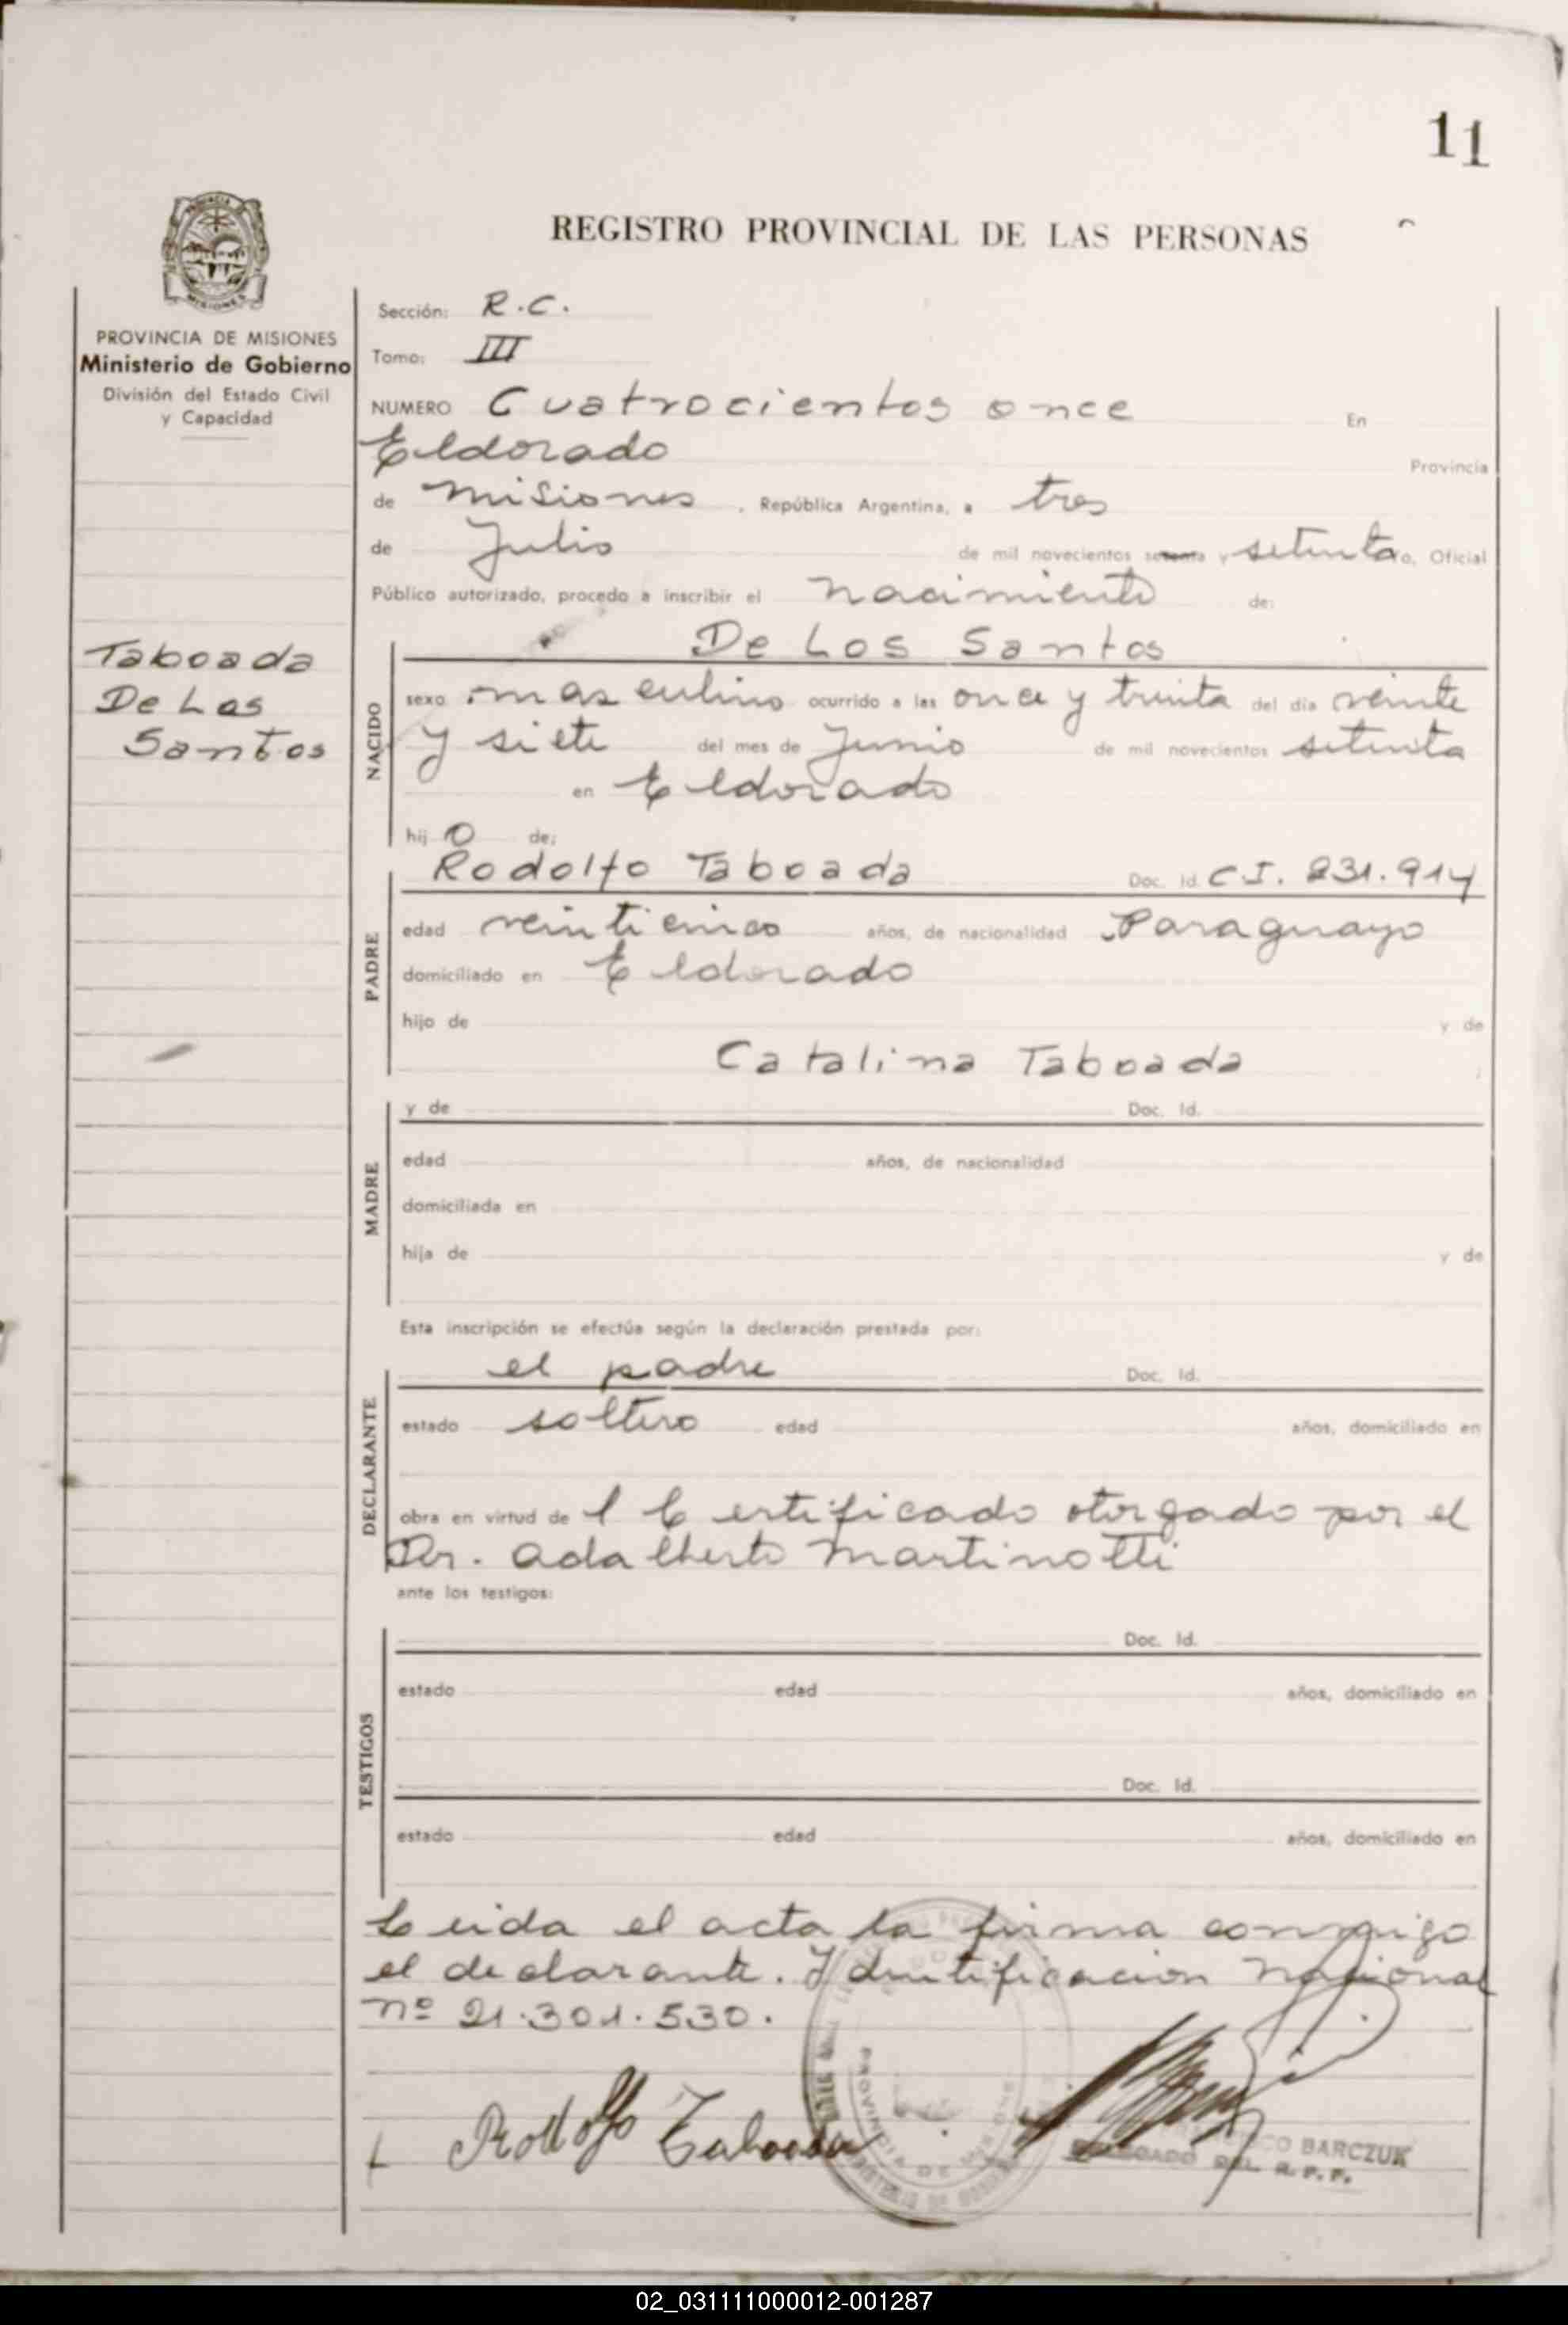 11
REGISTRO PROVINCIAL DE LAS PERSONAS
PROVINCIA DE MISIONES
Ministerio de Gobierno
División del Estado Civil
y Capacidad
Taboada
De Los
Santos
Sección: R.C.
Tomo: III
NUMERO Cuatrocientos once En
Eldorado Provincia
de Misiones, República Argentina, a tres
de Julio de mil novecientos sesenta y setenta o, Oficial
Público autorizado, procedo a inscribir el nacimiento de:
De Los Santos
NACIDO
sexo masculino ocurrido a las once y treinta del día veinte
y siete del mes de Junio de mil novecientos setenta
en Eldorado
hij o de:
Rodolfo Taboada Doc. Id. C.I. 231.914
PADRE
edad veinticinco años, de nacionalidad Paraguayo
domiciliado en Eldorado
hijo de y de
Catalina Taboada
y de Doc. Id.
MADRE
edad años, de nacionalidad
domiciliada en
hija de y de
Esta inscripción se efectúa según la declaración prestada por:
el padre Doc. Id.
DECLARANTE
estado soltero edad años, domiciliado en
obra en virtud de l Certificado otorgado por el
Dr. Adalberto Martinotti
ante los testigos:
Doc. Id.
TESTIGOS
estado edad años, domiciliado en
Doc. Id.
estado edad años, domiciliado en
Leida el acta la firma conmigo
el declarante. Identificacion Nacional
nº 21.301.530.
Rodolfo Taboada
BARCZUK
DEL R.P.P.
PROVINCIA DE MISIONES
02_031111000012-001287